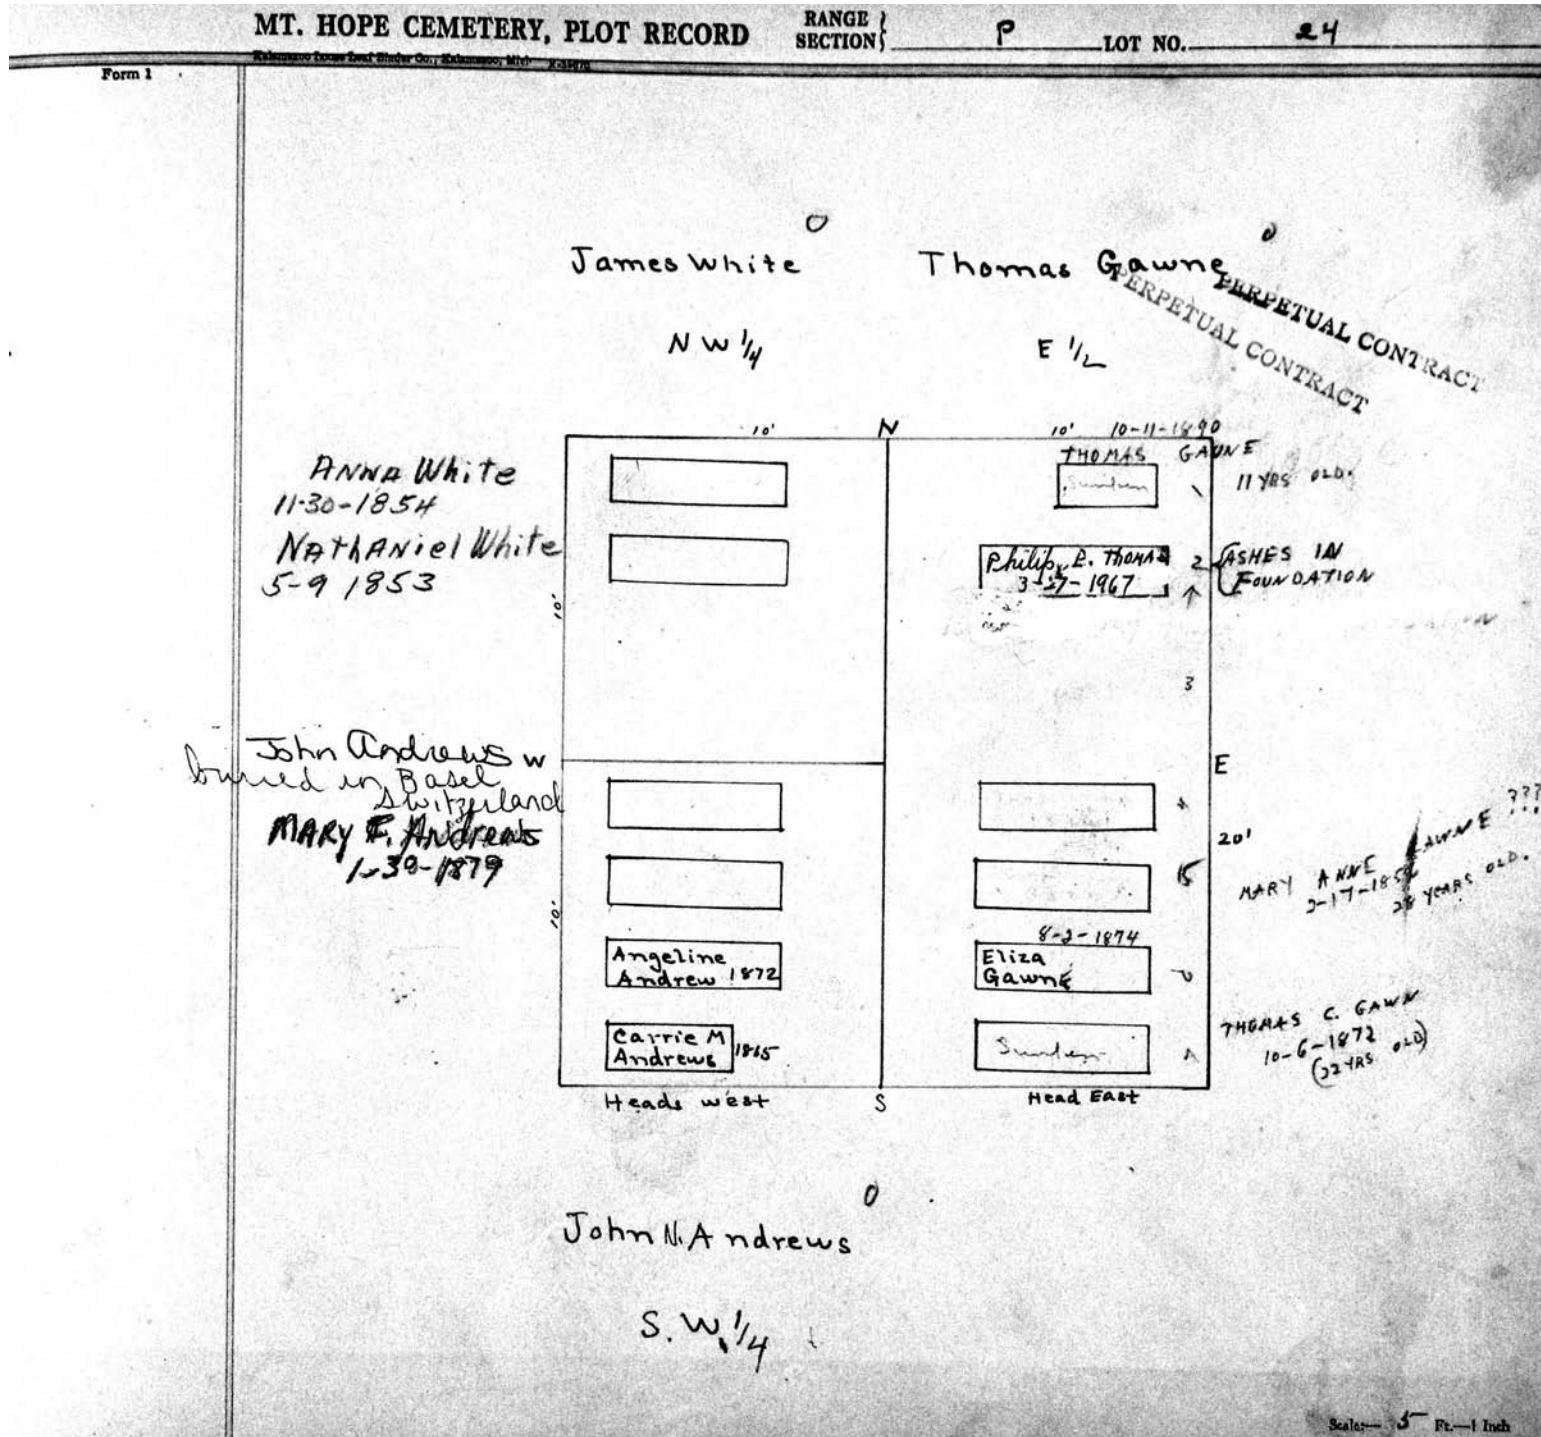 MT. HOPE CEMETERY, PLOT RECORD
RANGE
SECTION
P
LOT NO.
24
Kalamazoo Loose Leaf Binder Co., Kalamazoo, Mich.
Form 1
James White
Thomas Gawne
PERPETUAL CONTRACT
PERPETUAL CONTRACT
N W 1/4
E 1/2
10'
N
10'
10-11-1890
THOMAS GAUNE
11 YRS OLD.
1
ANNA White
11-30-1854
Nathaniel White
5-9 1853
10'
Philip E. Thomas
3-27-1967
2
ASHES IN
FOUNDATION
3
John Andrews
W
buried in Basel
Switzerland
MARY F. Andrews
1-30-1879
E
20'
4
MARY ANNE GAWNE ???
28 YEARS OLD.
10'
Angeline
Andrew 1872
8-2-1874
Eliza
Gawne
Carrie M
Andrews
1865
THOMAS C. GAWN
10-6-1872
(22 YRS OLD)
Heads west
S
Head East
John N. Andrews
S. W. 1/4
Scale:— 5 Ft.—1 Inch